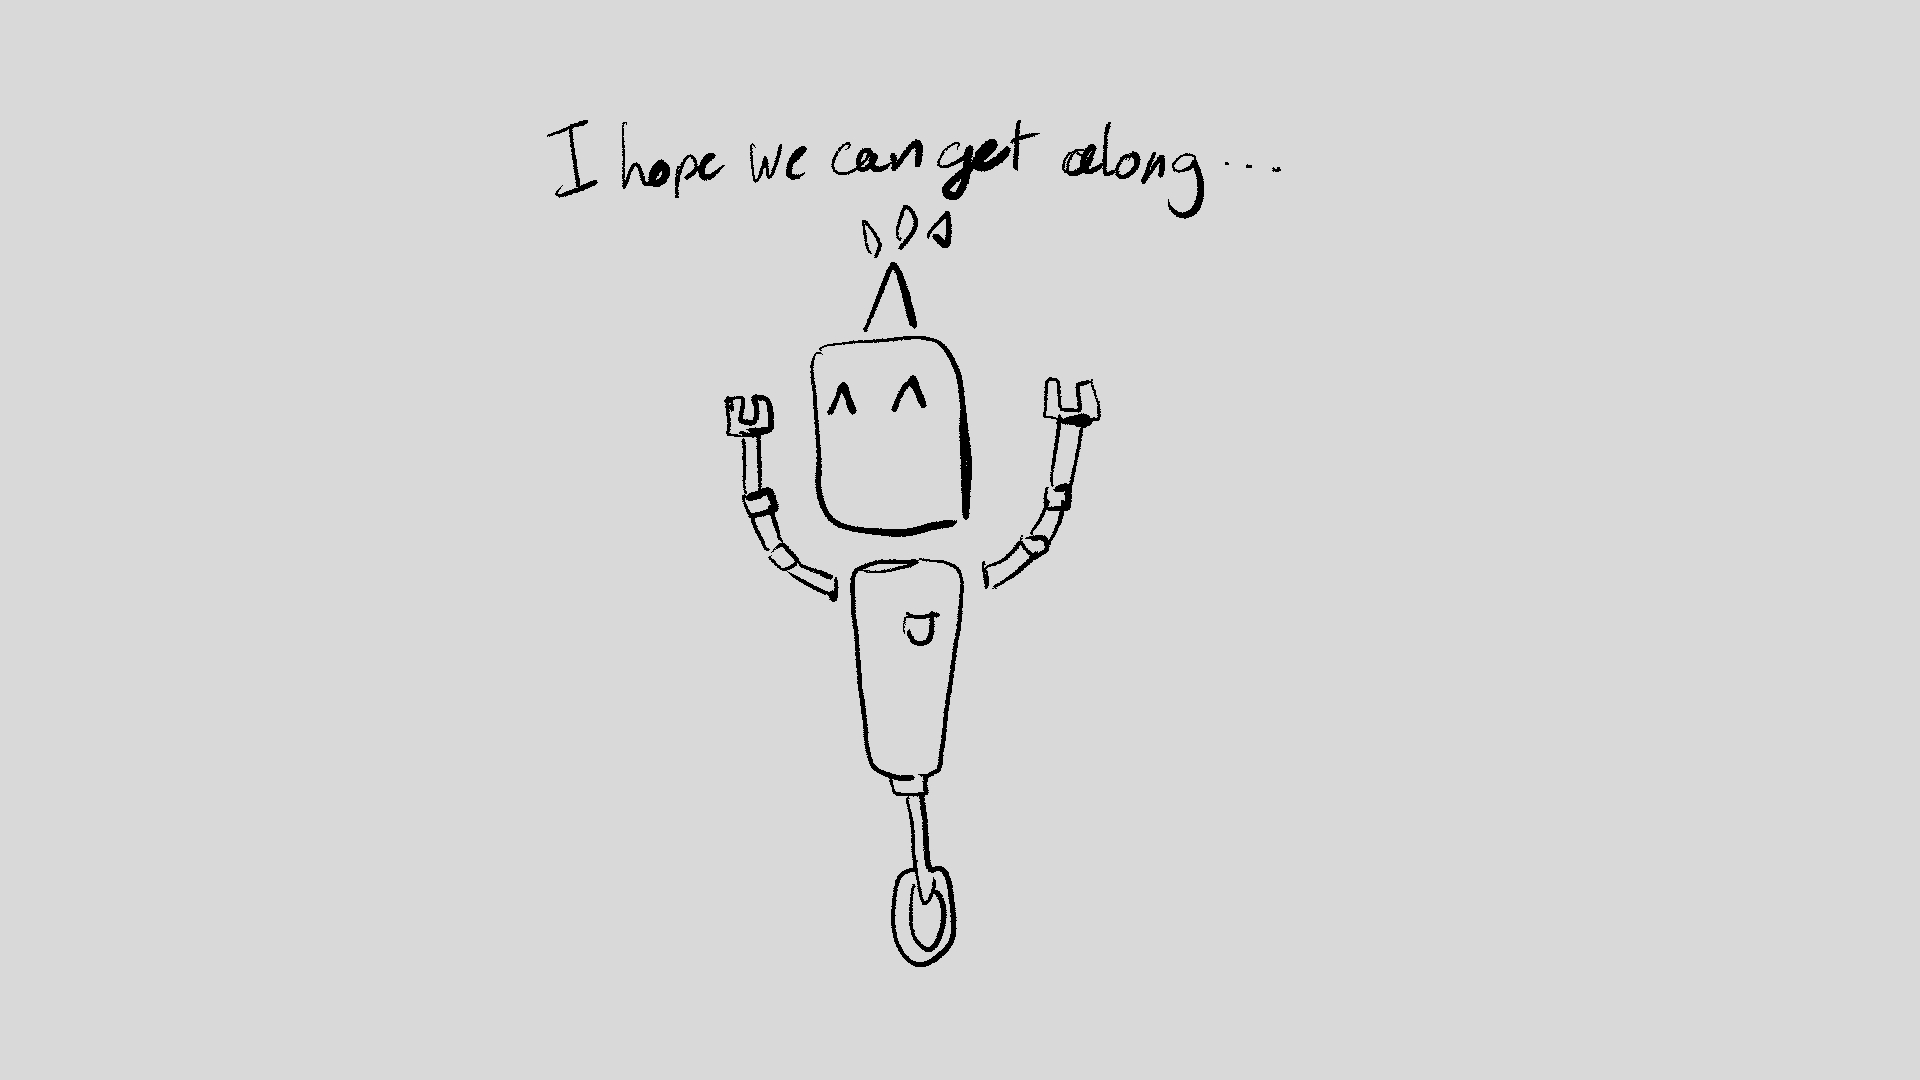 I hope we can get along...